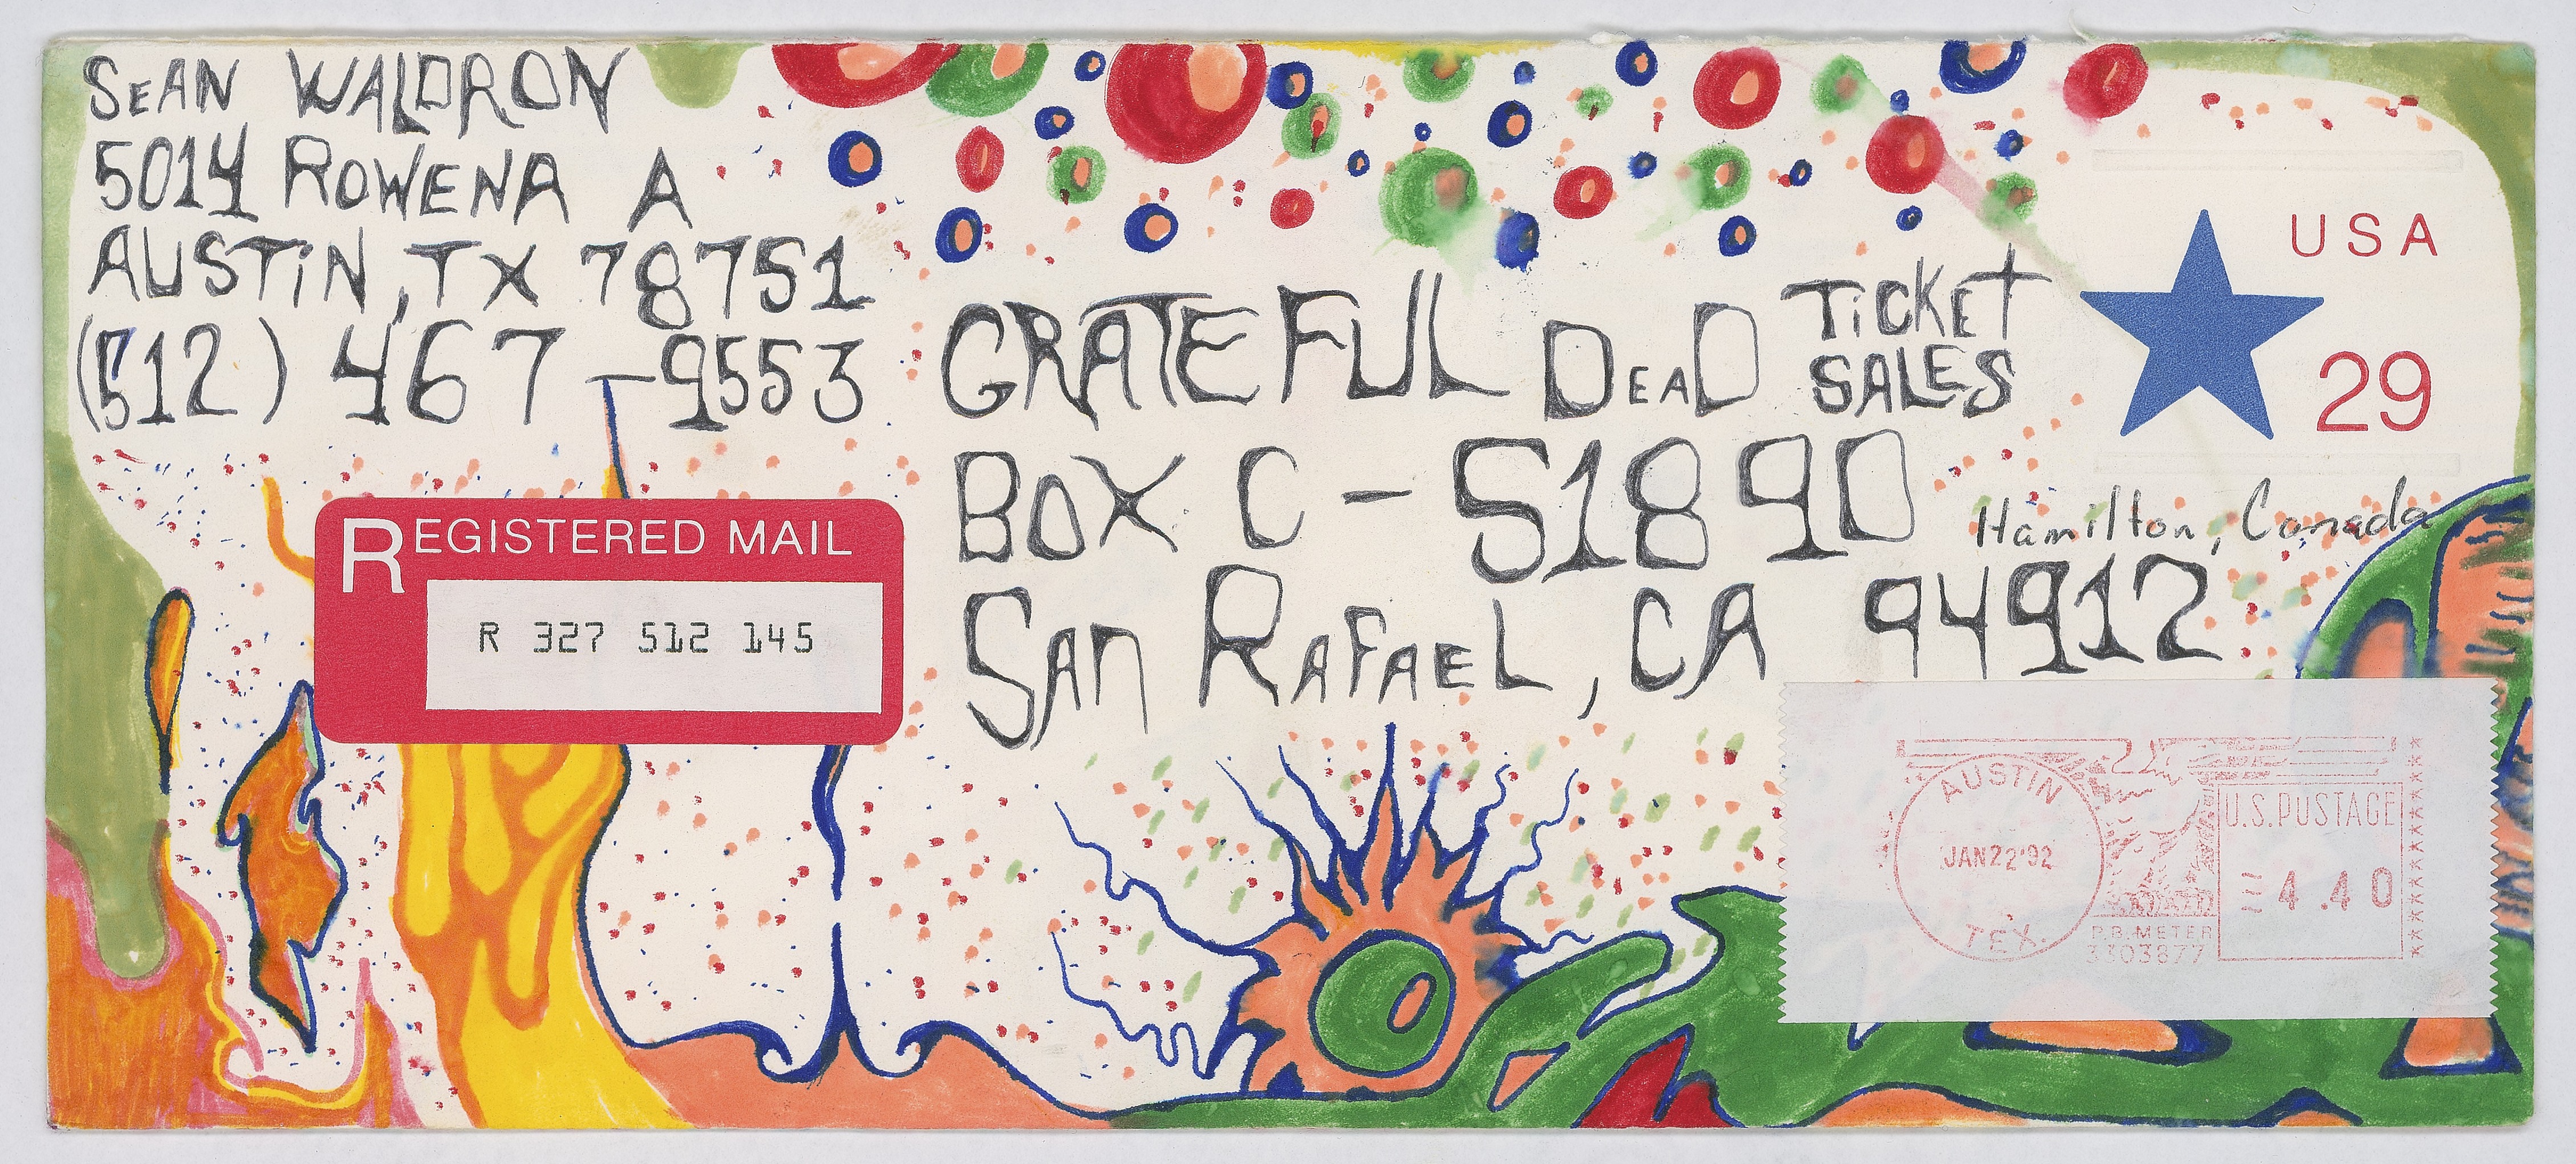 SEAN WALDRON
5014 ROWENA A
AUSTIN, TX 78751
(512) 467-9553
USA
29
GRATEFUL DEAD TICKET SALES
BOX C-51890
Hamilton, Canada
SAN RAFAEL, CA 94912
REGISTERED MAIL
R 327 512 145
AUSTIN
JAN22'92
TEX.
U.S. POSTAGE
4.40
P.B. METER
3303877